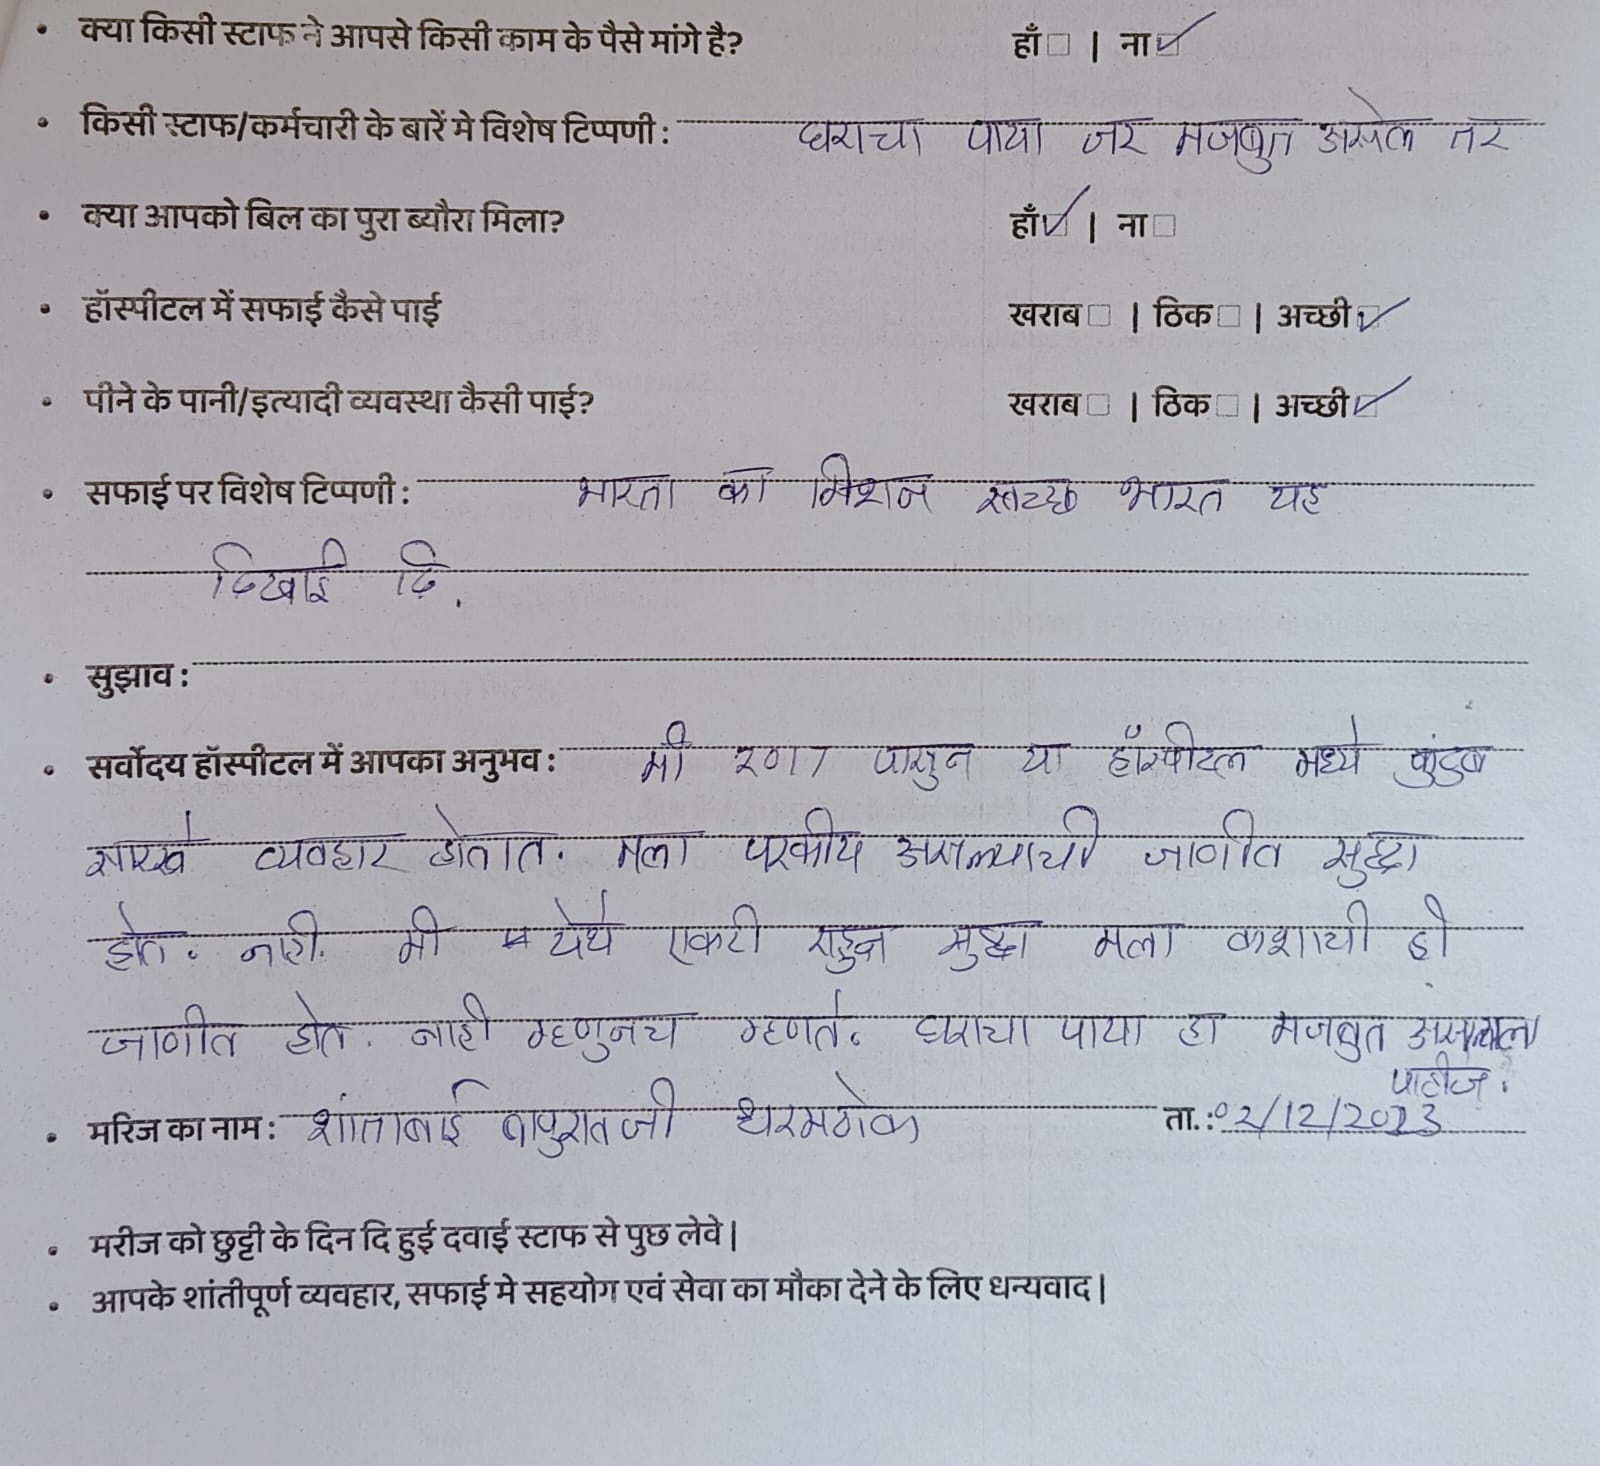 • क्या किसी स्टाफ ने आपसे किसी काम के पैसे मांगे है? हाँ□ | ना☑
• किसी स्टाफ/कर्मचारी के बारें मे विशेष टिप्पणी : घराचा पाया जर मजबुत असेल तर
• क्या आपको बिल का पुरा ब्यौरा मिला? हाँ☑ | ना□
• हॉस्पीटल में सफाई कैसे पाई खराब□ | ठिक□ | अच्छी☑
• पीने के पानी/इत्यादी व्यवस्था कैसी पाई? खराब□ | ठिक□ | अच्छी☑
• सफाई पर विशेष टिप्पणी : भारता का मिशन स्वच्छ भारत यह
दिखाई दि.
• सुझाव :
• सर्वोदय हॉस्पीटल में आपका अनुभव : मी २०१७ पासुन या हॉस्पीटल मध्ये कुंटुब
सारखे व्यवहार होतात. मला परकीय असल्याची जाणीत सुद्धा
होत. नाही. मी येथे एकटी राहुन सुद्धा मला कशाची ही
जाणीत होत. नाही म्हणुनच म्हणते. घराचा पाया हा मजबुत असलेला
पाहीजे.
• मरिज का नाम : शांताबाई बापुरावजी ता. : ०२/12/2023
• मरीज को छुट्टी के दिन दि हुई दवाई स्टाफ से पुछ लेवे |
• आपके शांतीपूर्ण व्यवहार, सफाई मे सहयोग एवं सेवा का मौका देने के लिए धन्यवाद |